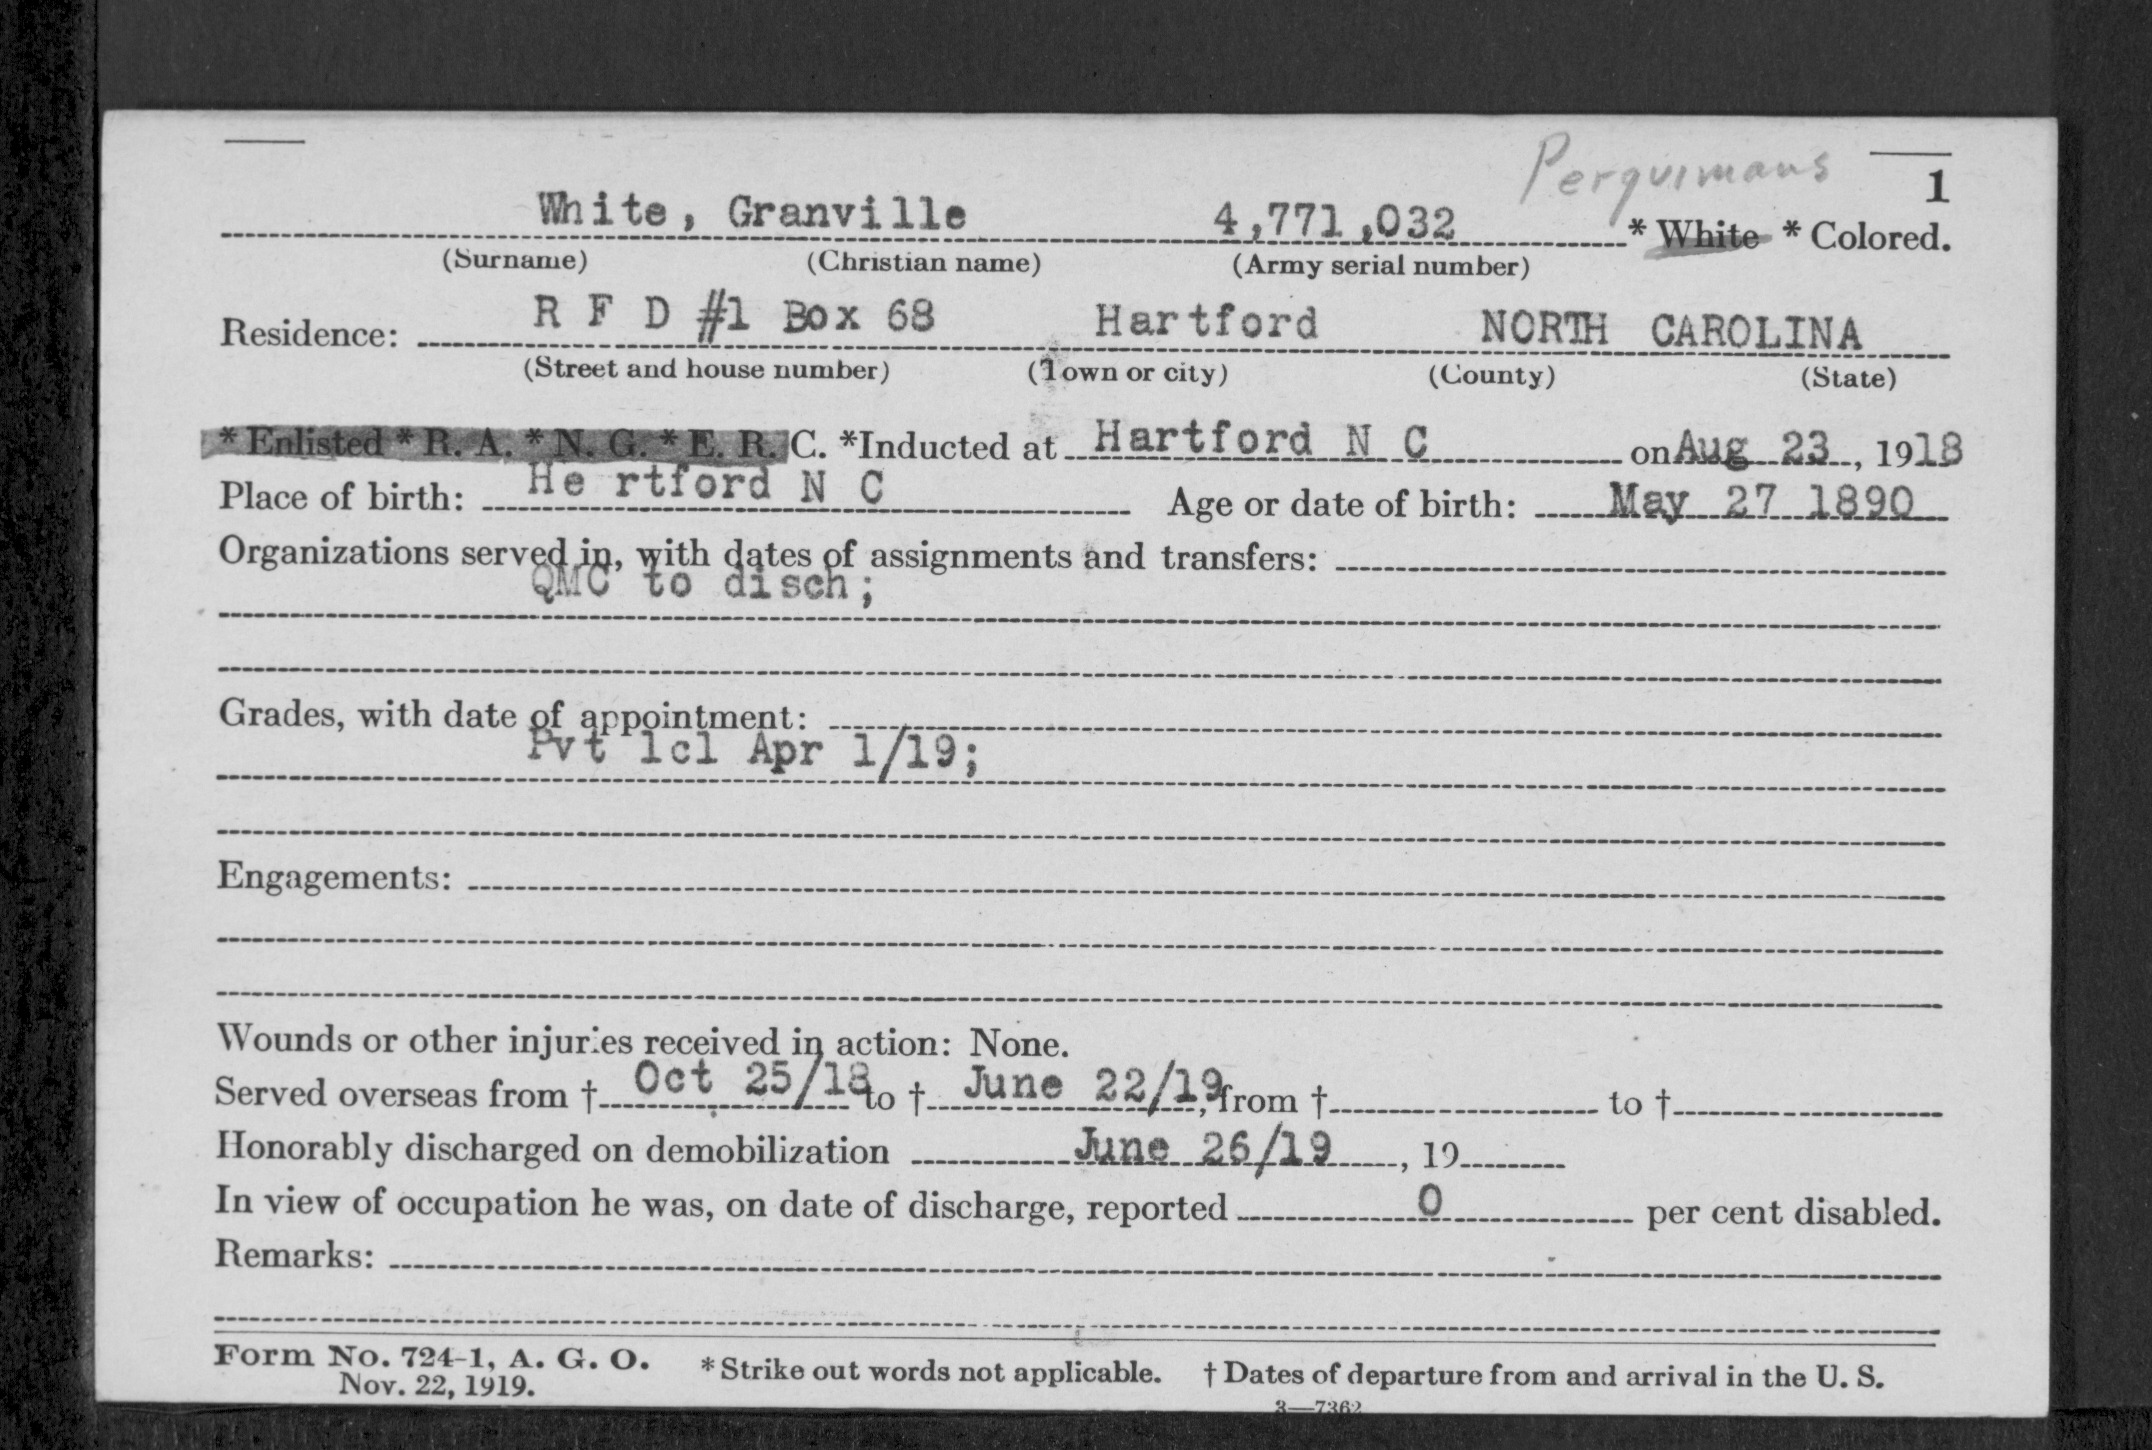 Perquimans
1
White, Granville 4,771,032 * White * Colored.
(Surname) (Christian name) (Army serial number)
Residence: R F D #1 Box 68 Hartford NORTH CAROLINA
(Street and house number) (Town or city) (County) (State)
* Enlisted * R. A. * N. G. * E. R. C. *Inducted at Hartford N C on Aug 23, 1918
Place of birth: He rtford N C Age or date of birth: May 27 1890
Organizations served in, with dates of assignments and transfers:
QMC to disch;
Grades, with date of appointment:
Pvt 1cl Apr 1/19;
Engagements:
Wounds or other injuries received in action: None.
Served overseas from † Oct 25/18 to † June 22/19, from † to †
Honorably discharged on demobilization June 26/19, 19
In view of occupation he was, on date of discharge, reported 0 per cent disabled.
Remarks:
Form No. 724-1, A. G. O. * Strike out words not applicable. † Dates of departure from and arrival in the U. S.
Nov. 22, 1919.
3—7362